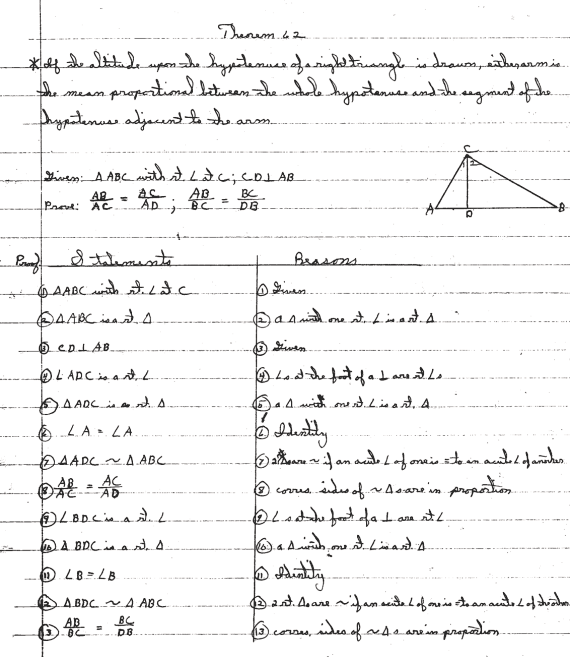 Theorem 62
* If the altitude upon the hypotenuse of a right triangl is drawn, either arm is
the mean proportional between the whole hypotenuse and the segment of the
hypotenuse adjacent to the arm
Given: △ABC with rt. ∠ at C; CD⊥AB
Prove: AB/AC = AC/AD ; AB/BC = BC/DB
C
1 2
A D B
Proof Statements Reasons
① △ABC with rt. ∠ at C ① Given
② △ABC is a rt. △ ② a △ with one rt. ∠ is a rt. △
③ CD⊥AB ③ Given
④ ∠ADC is a rt. ∠ ④ ∠s at the foot of a ⊥ are rt ∠s
⑤ △ADC is a rt. △ ⑤ a △ with one rt ∠ is a rt. △
⑥ ∠A = ∠A ⑥ Identity
⑦ △ADC ~ △ABC ⑦ 2 △s are ~ if an acute ∠ of one is = to an acute ∠ of another
⑧ AB/AC = AC/AD ⑧ corres. sides of ~ △s are in proportion
⑨ ∠BDC is a rt. ∠ ⑨ ∠s at the foot of a ⊥ are rt ∠
⑩ △BDC is a rt. △ ⑩ a △ with one rt ∠ is a rt △
⑪ ∠B = ∠B ⑪ Identity
⑫ △BDC ~ △ABC ⑫ 2 rt. △s are ~ if an acute ∠ of one is = to an acute ∠ of
⑬ AB/BC = BC/DB ⑬ corres. sides of ~ △s are in proportion